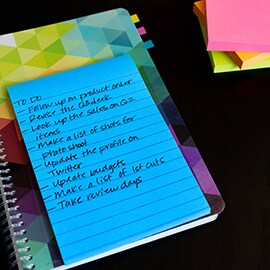 TO DO
- Follow up on product order
- Revise the Q3 deck
- Look up the sales on Q2
items
- Make a list of shots for
photo shoot
- Update the profile on
Twitter
- Update budgets
- Make a list of 1st cuts
- Take review days